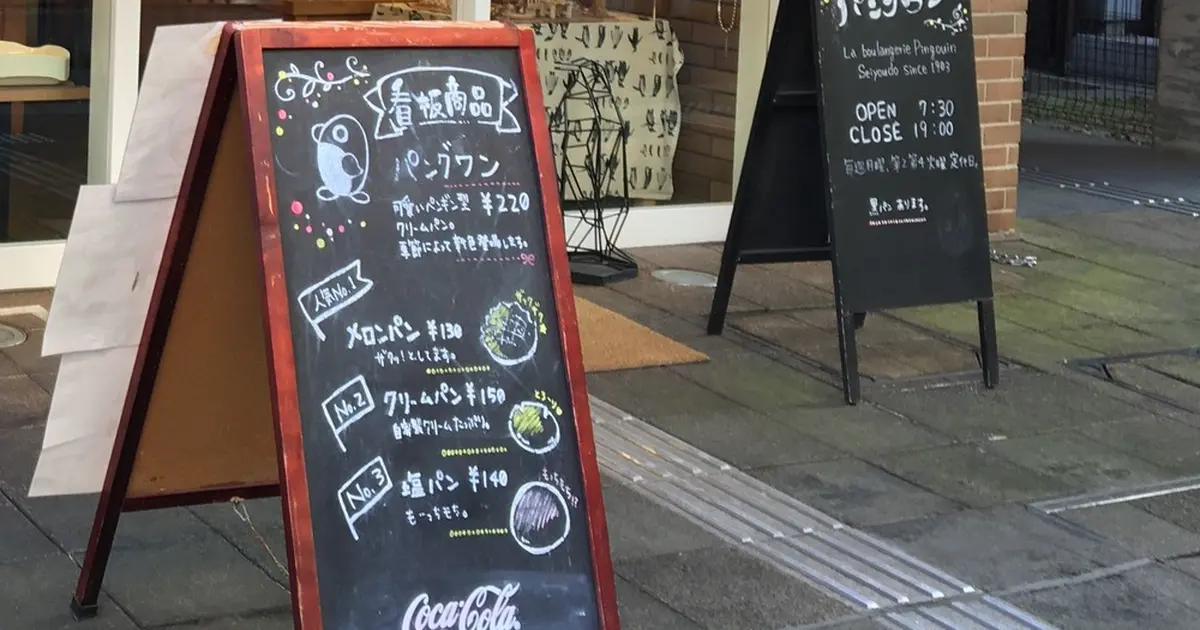 看板商品
パングワン
可愛いペンギン型 ¥220
クリームパン。
季節によって新色登場します。
人気No.1
メロンパン ¥130
ザクッ!としてます。
ザックザク
No.2
クリームパン ¥150
自家製クリームたっぷり。
とろ〜り
No.3
塩パン ¥140
もーっちもち。
もちもち!?
Coca-Cola
パングワン
La boulangerie Pingouin
Seiyoudo since 1903
OPEN 7:30
CLOSE 19:00
毎週月曜、第2第4火曜 定休日。
黒パンあります。